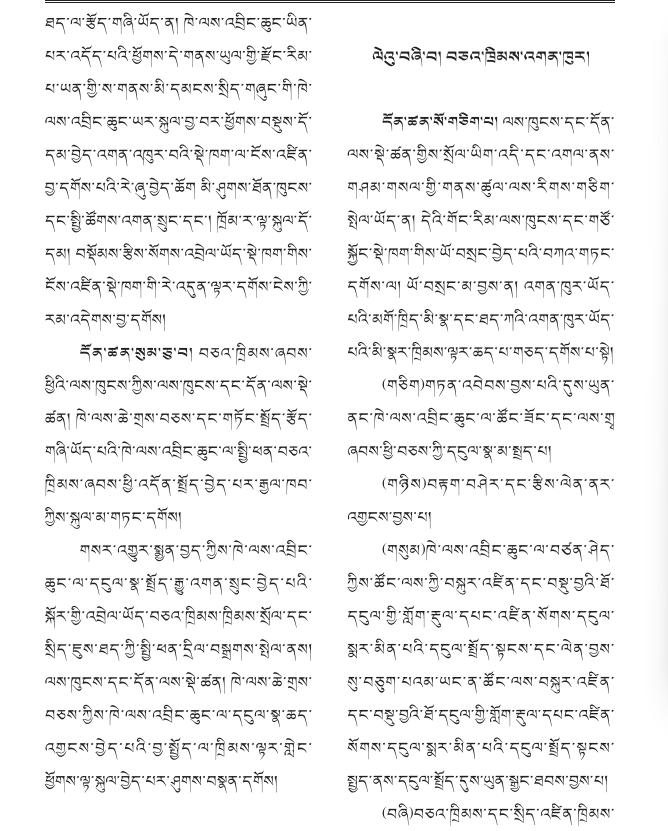 ཐད་ལ་རྩོད་གཞི་ཡོད་ན། ཁེ་ལས་འབྲིང་ཆུང་ཡིན་
པར་འདོད་པའི་ཕྱོགས་དེ་གནས་ཡུལ་གྱི་རྫོང་རིམ་
པ་ཡན་གྱི་ས་གནས་མི་དམངས་སྲིད་གཞུང་གི་ཁེ་
ལས་འབྲིང་ཆུང་ཡར་སྐུལ་བྱ་བར་ཕྱོགས་བསྡུས་དོ་
དམ་བྱེད་འགན་འཁུར་བའི་སྡེ་ཁག་ལ་ངོས་འཛིན་
བྱ་དགོས་པའི་རེ་ཞུ་བྱེད་ཆོག མི་ཤུགས་ཐོན་ཁུངས་
དང་སྤྱི་ཚོགས་འགན་སྲུང་དང་། ཁྲོམ་ར་ལྟ་སྐུལ་དོ་
དམ། བསྡོམས་རྩིས་སོགས་འབྲེལ་ཡོད་སྡེ་ཁག་གིས་
ངོས་འཛིན་སྡེ་ཁག་གི་རེ་འདུན་ལྟར་དགོས་ངེས་ཀྱི་
རམ་འདེགས་བྱ་དགོས།
དོན་ཚན་སུམ་ཅུ་བ། བཅའ་ཁྲིམས་ཞབས་
ཕྱིའི་ལས་ཁུངས་ཀྱིས་ལས་ཁུངས་དང་དོན་ལས་སྡེ་
ཚན། ཁེ་ལས་ཆེ་གྲས་བཅས་དང་གཏོང་སྤྲོད་རྩོད་
གཞི་ཡོད་པའི་ཁེ་ལས་འབྲིང་ཆུང་ལ་སྤྱི་ཕན་བཅའ་
ཁྲིམས་ཞབས་ཕྱི་འདོན་སྤྲོད་བྱེད་པར་རྒྱལ་ཁབ་
ཀྱིས་སྐུལ་མ་གཏང་དགོས།
གསར་འགྱུར་སྨྱན་བྱད་ཀྱིས་ཁེ་ལས་འབྲིང་
ཆུང་ལ་དངུལ་སྣ་སྤྲོད་རྒྱུ་འགན་སྲུང་བྱེད་པའི་
སྐོར་གྱི་འབྲེལ་ཡོད་བཅའ་ཁྲིམས་ཁྲིམས་སྲོལ་དང་
སྲིད་ཇུས་ཐད་ཀྱི་སྤྱི་ཕན་དྲིལ་བསྒྲགས་སྤེལ་ནས།
ལས་ཁུངས་དང་དོན་ལས་སྡེ་ཚན། ཁེ་ལས་ཆེ་གྲས་
བཅས་ཀྱིས་ཁེ་ལས་འབྲིང་ཆུང་ལ་དངུལ་སྣ་ཆད་
འགྱངས་བྱེད་པའི་བྱ་སྤྱོད་ལ་ཁྲིམས་ལྟར་གླེང་
ཕྱོགས་ལྟ་སྐུལ་བྱེད་པར་ཤུགས་བསྣན་དགོས།
ལེའུ་བཞི་བ། བཅའ་ཁྲིམས་འགན་ཁུར།
དོན་ཚན་སོ་གཅིག་པ། ལས་ཁུངས་དང་དོན་
ལས་སྡེ་ཚན་གྱིས་སྲོལ་ཡིག་འདི་དང་འགལ་ནས་
གཤམ་གསལ་གྱི་གནས་ཚུལ་ལས་རིགས་གཅིག་
སྤེལ་ཡོད་ན། དེའི་གོང་རིམ་ལས་ཁུངས་དང་གཙོ་
སྐྱོང་སྡེ་ཁག་གིས་ཡོ་བསྲང་བྱེད་པའི་བཀའ་གཏང་
དགོས་ལ། ཡོ་བསྲང་མ་བྱས་ན། འགན་ཁུར་ཡོད་
པའི་མགོ་ཁྲིད་མི་སྣ་དང་ཐད་ཀའི་འགན་ཁུར་ཡོད་
པའི་མི་སྣར་ཁྲིམས་ལྟར་ཆད་པ་གཅད་དགོས་པ་སྟེ།
(གཅིག)གཏན་འབེབས་བྱས་པའི་དུས་ཡུན་
ནང་ཁེ་ལས་འབྲིང་ཆུང་ལ་ཚོང་ཟོང་དང་ལས་གྲྭ
ཞབས་ཕྱི་བཅས་ཀྱི་དངུལ་སྣ་མ་སྤྲད་པ།
(གཉིས)བརྟག་བཤེར་དང་རྩིས་ལེན་ནར་
འགྱངས་བྱས་པ།
(གསུམ)ཁེ་ལས་འབྲིང་ཆུང་ལ་བཙན་ཤེད་
ཀྱིས་ཚོང་ལས་ཀྱི་བསྐུར་འཛིན་དང་བསྡུ་བྱའི་ཐོ་
དངུལ་གྱི་གློག་རྡུལ་དཔང་འཛིན་སོགས་དངུལ་
སྨར་མིན་པའི་དངུལ་སྤྲོད་སྟངས་དང་ལེན་བྱས་
སུ་བཅུག་པའམ་ཡང་ན་ཚོང་ལས་བསྐུར་འཛིན་
དང་བསྡུ་བྱའི་ཐོ་དངུལ་གྱི་གློག་རྡུལ་དཔང་འཛིན་
སོགས་དངུལ་སྨར་མིན་པའི་དངུལ་སྤྲོད་སྟངས་
སྤྱད་ནས་དངུལ་སྤྲོད་དུས་ཡུན་སྒྱང་ཐབས་བྱས་པ།
(བཞི)བཅའ་ཁྲིམས་དང་སྲིད་འཛིན་ཁྲིམས་